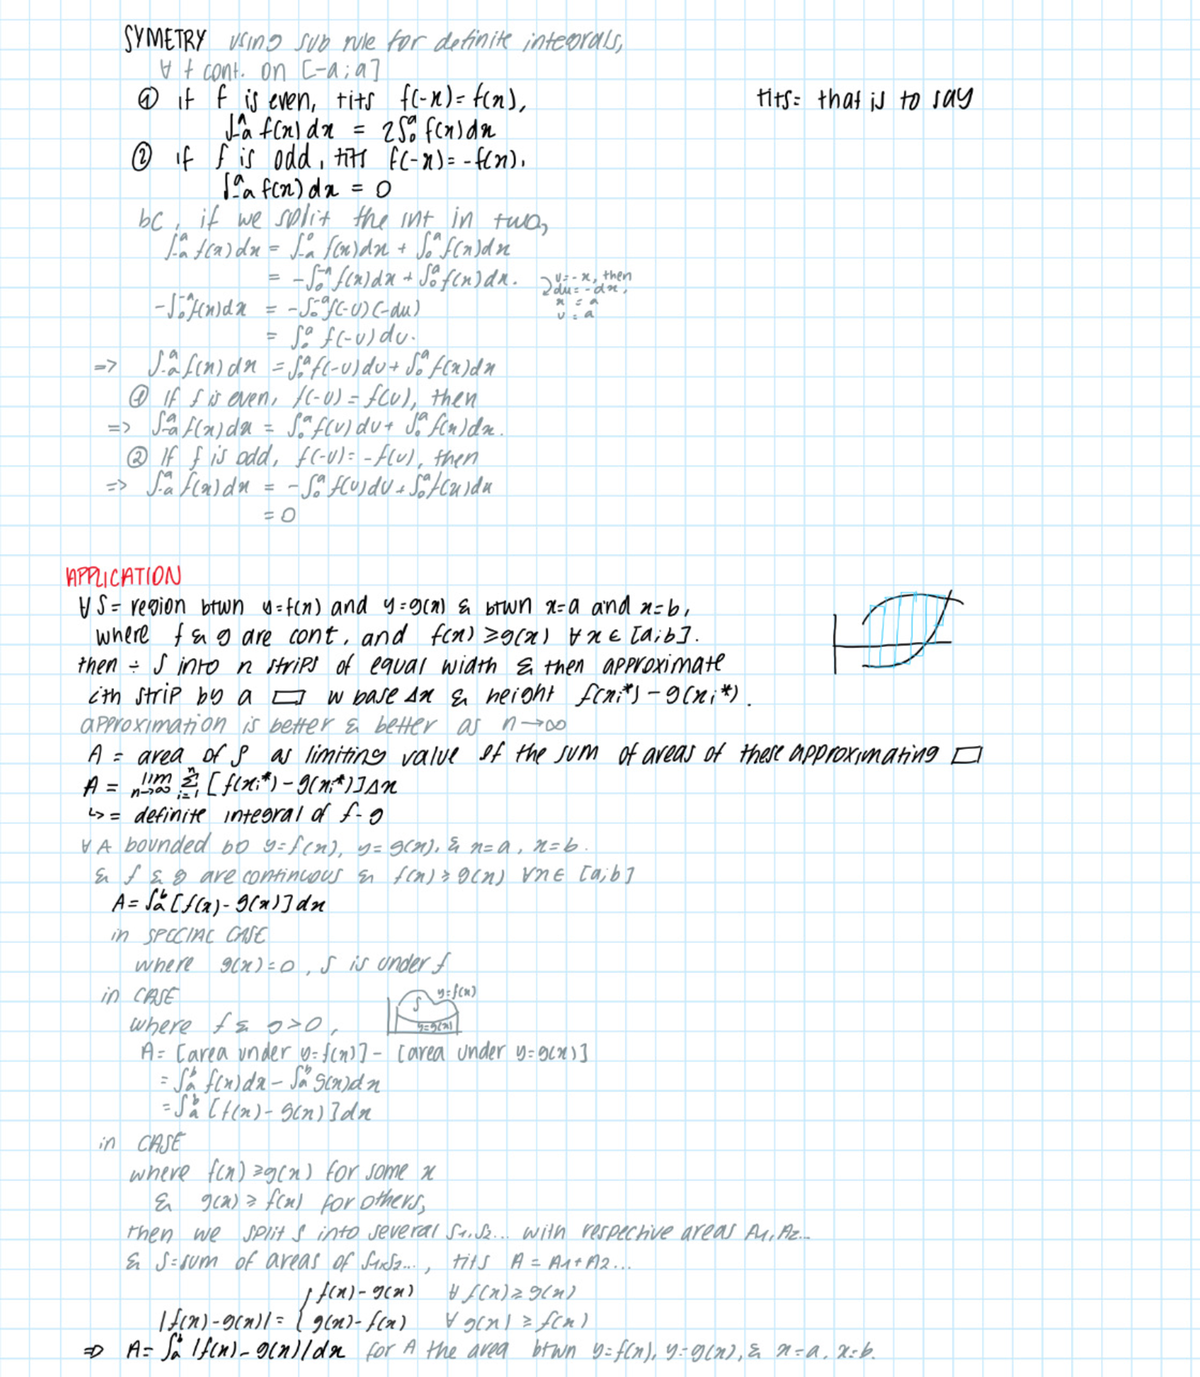 SYMETRY using sub rule for definite integrals,
∀ f cont. on [-a;a]
① if f is even, tits f(-x)= f(x),
∫₋ₐᵃ f(x) dx = 2∫₀ᵃ f(x) dx
tits= that is to say
② if f is odd, tits f(-x)= -f(x),
∫₋ₐᵃ f(x) dx = 0
bc, if we split the int in two,
∫₋ₐᵃ f(x) dx = ∫₋ₐ⁰ f(x) dx + ∫₀ᵃ f(x) dx
= -∫₀⁻ᵃ f(x) dx + ∫₀ᵃ f(x) dx.
u=-x, then
du=-dx,
x = a
u = a
-∫₀⁻ᵃ f(x) dx = -∫₀⁻ᵃ f(-u)(-du)
= ∫₀ᵃ f(-u) du.
=> ∫₋ₐᵃ f(x) dx = ∫₀ᵃ f(-u) du + ∫₀ᵃ f(x) dx
① If f is even, f(-u) = f(u), then
=> ∫₋ₐᵃ f(x) dx = ∫₀ᵃ f(u) du + ∫₀ᵃ f(x) dx.
② If f is odd, f(-u)= -f(u), then
=> ∫₋ₐᵃ f(x) dx = -∫₀ᵃ f(u) du + ∫₀ᵃ f(x) dx
= 0
APPLICATION
∀ S = region btwn y=f(x) and y=g(x) & btwn x=a and x=b,
where f & g are cont, and f(x) ≥ g(x) ∀ x ∈ [a;b].
then ÷ S into n strips of equal width & then approximate
ith strip by a ▭ w base Δx & height f(xᵢ*) - g(xᵢ*).
approximation is better & better as n→∞
A = area of S as limiting value of the sum of areas of these approximating ▭
A = lim n→∞ Σ i=1 n [f(xᵢ*) - g(xᵢ*)]Δx
↳ = definite integral of f-g
∀ A bounded bo y=f(x), y=g(x), & x=a, x=b.
& f & g are continuous & f(x) ≥ g(x) ∀x ∈ [a;b]
A = ∫ₐᵇ [f(x) - g(x)] dx
in SPECIAL CASE
where g(x)=0, S is under f
in CASE
y=f(x)
S
where f & g>0,
y=g(x)
A = [area under y=f(x)] - [area under y=g(x)]
= ∫ₐᵇ f(x) dx - ∫ₐᵇ g(x) dx
= ∫ₐᵇ [f(x) - g(x)] dx
in CASE
where f(x) ≥ g(x) for some x
& g(x) ≥ f(x) for others,
then we split S into several S₁, S₂... with respective areas A₁, A₂...
& S = sum of areas of S₁, S₂..., tits A = A1 + A2...
f(x) - g(x) ∀ f(x) ≥ g(x)
|f(x) - g(x)| = { g(x) - f(x) ∀ g(x) ≥ f(x)
⇒ A = ∫ₐᵇ |f(x) - g(x)| dx for A the area btwn y=f(x), y=g(x), & x=a, x=b.